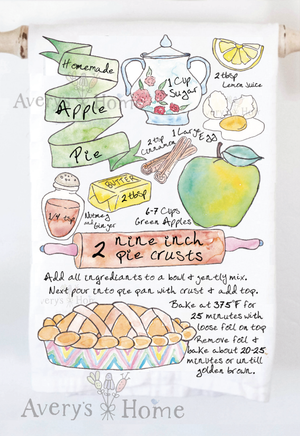 Homemade
Apple
Pie
1 Cup
Sugar
2 tbsp
Lemon Juice
2 tsp
Cinnamon
1 Large
Egg
BUTTER
2 tbsp
1/4 tsp
Nutmeg
and Ginger
6-7 Cups
Green Apples
2 nine inch
pie crusts
Add all ingredients to a bowl & gently mix.
Next pour into pie pan with crust & add top.
Bake at 375°F for
25 minutes with
loose foil on top
Remove foil &
bake about 20-25
minutes or until
golden brown.
Avery's Home
Avery's Home
Avery's Home